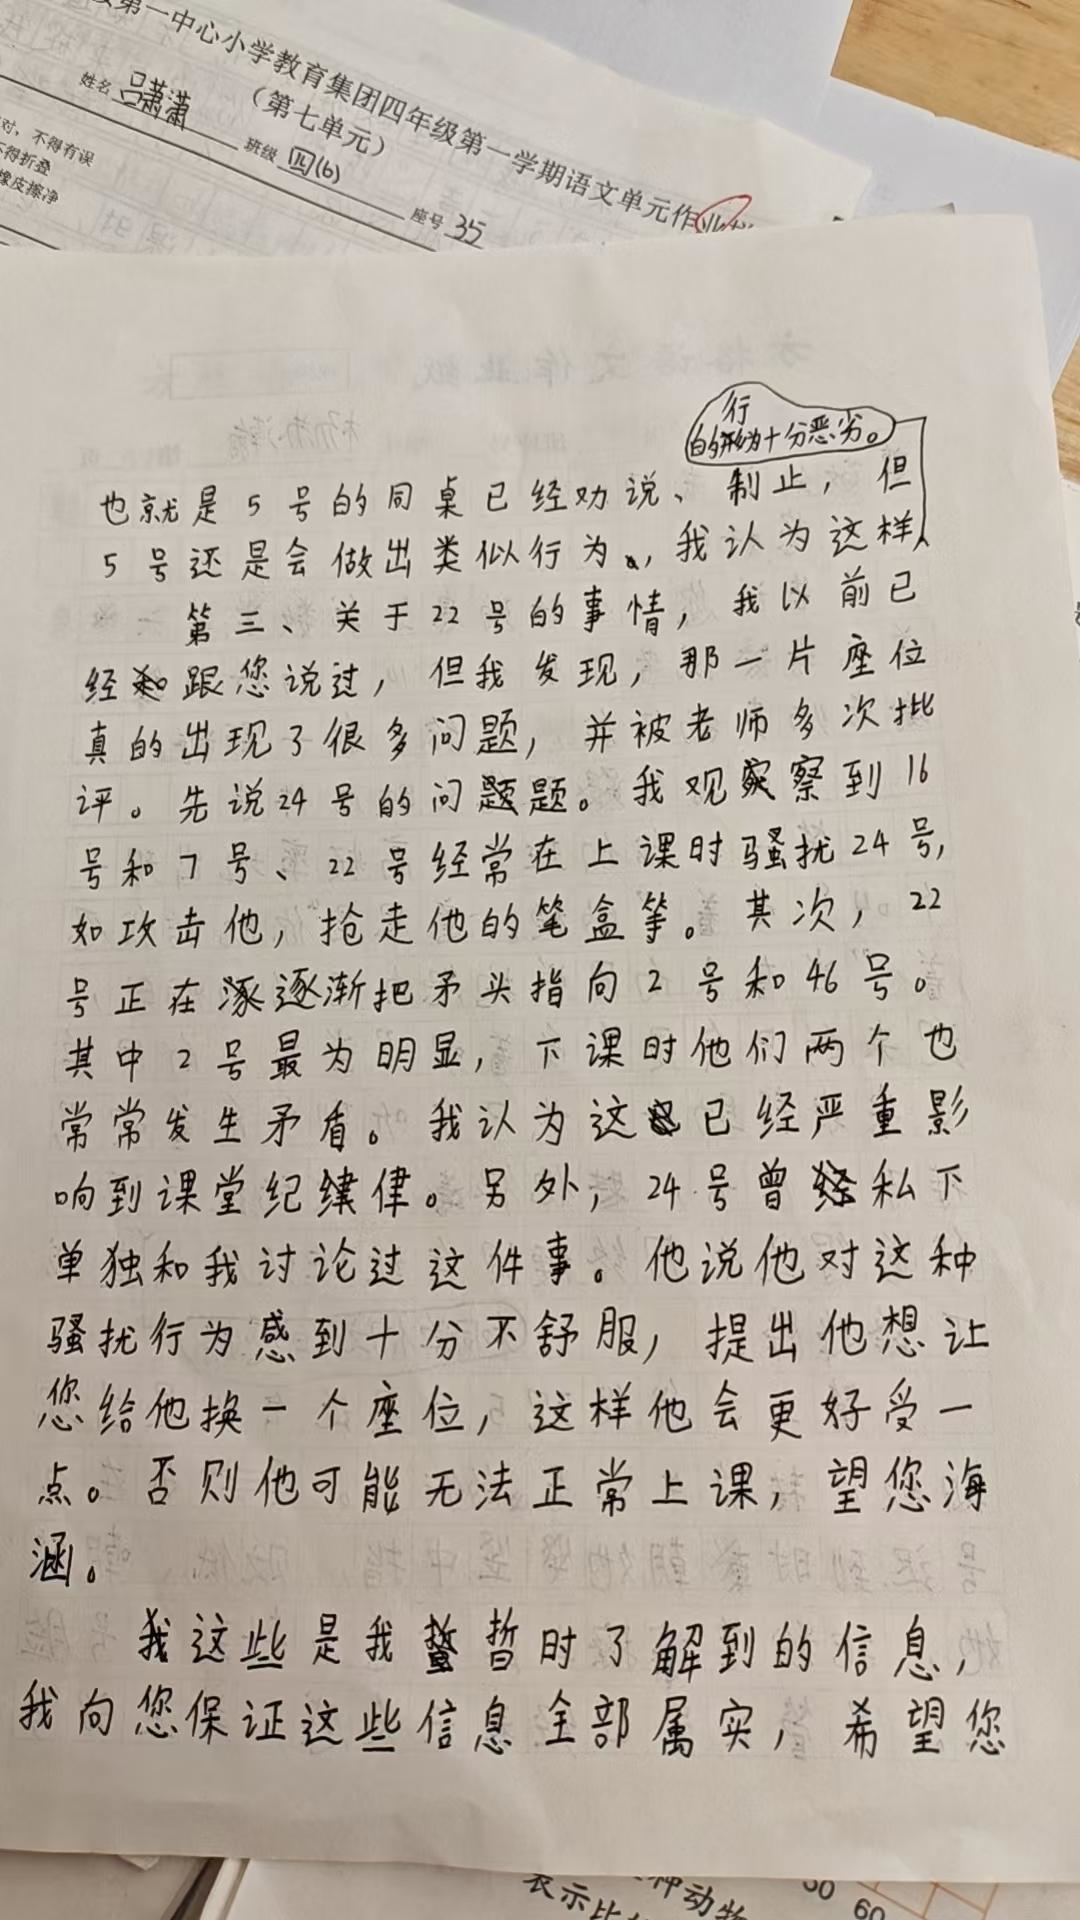 第一中心小学教育集团四年级第一学期语文单元作业
（第七单元）
姓名 吕萧潇 班级 四(6) 座号 35
对，不得有误
不得折叠
橡皮擦净
行
的行为十分恶劣。
也就是5号的同桌已经劝说、制止，但
5号还是会做出类似行为，我认为这样
第三、关于22号的事情，我以前已
经跟您说过，但我发现，那一片座位
真的出现了很多问题，并被老师多次批
评。先说24号的问题题。我观察察到16
号和7号、22号经常在上课时骚扰24号，
如攻击他，抢走他的笔盒等。其次，22
号正在逐逐渐把矛头指向2号和46号。
其中2号最为明显，下课时他们两个也
常常发生矛盾。我认为这已经严重影
响到课堂纪律律。另外，24号曾经私下
单独和我讨论过这件事。他说他对这种
骚扰行为感到十分不舒服，提出他想让
您给他换一个座位，这样他会更好受一
点。否则他可能无法正常上课，望您海
涵。
我这些是我暂暂时了解到的信息，
我向您保证这些信息全部属实，希望您
种动物
表示比
50 60